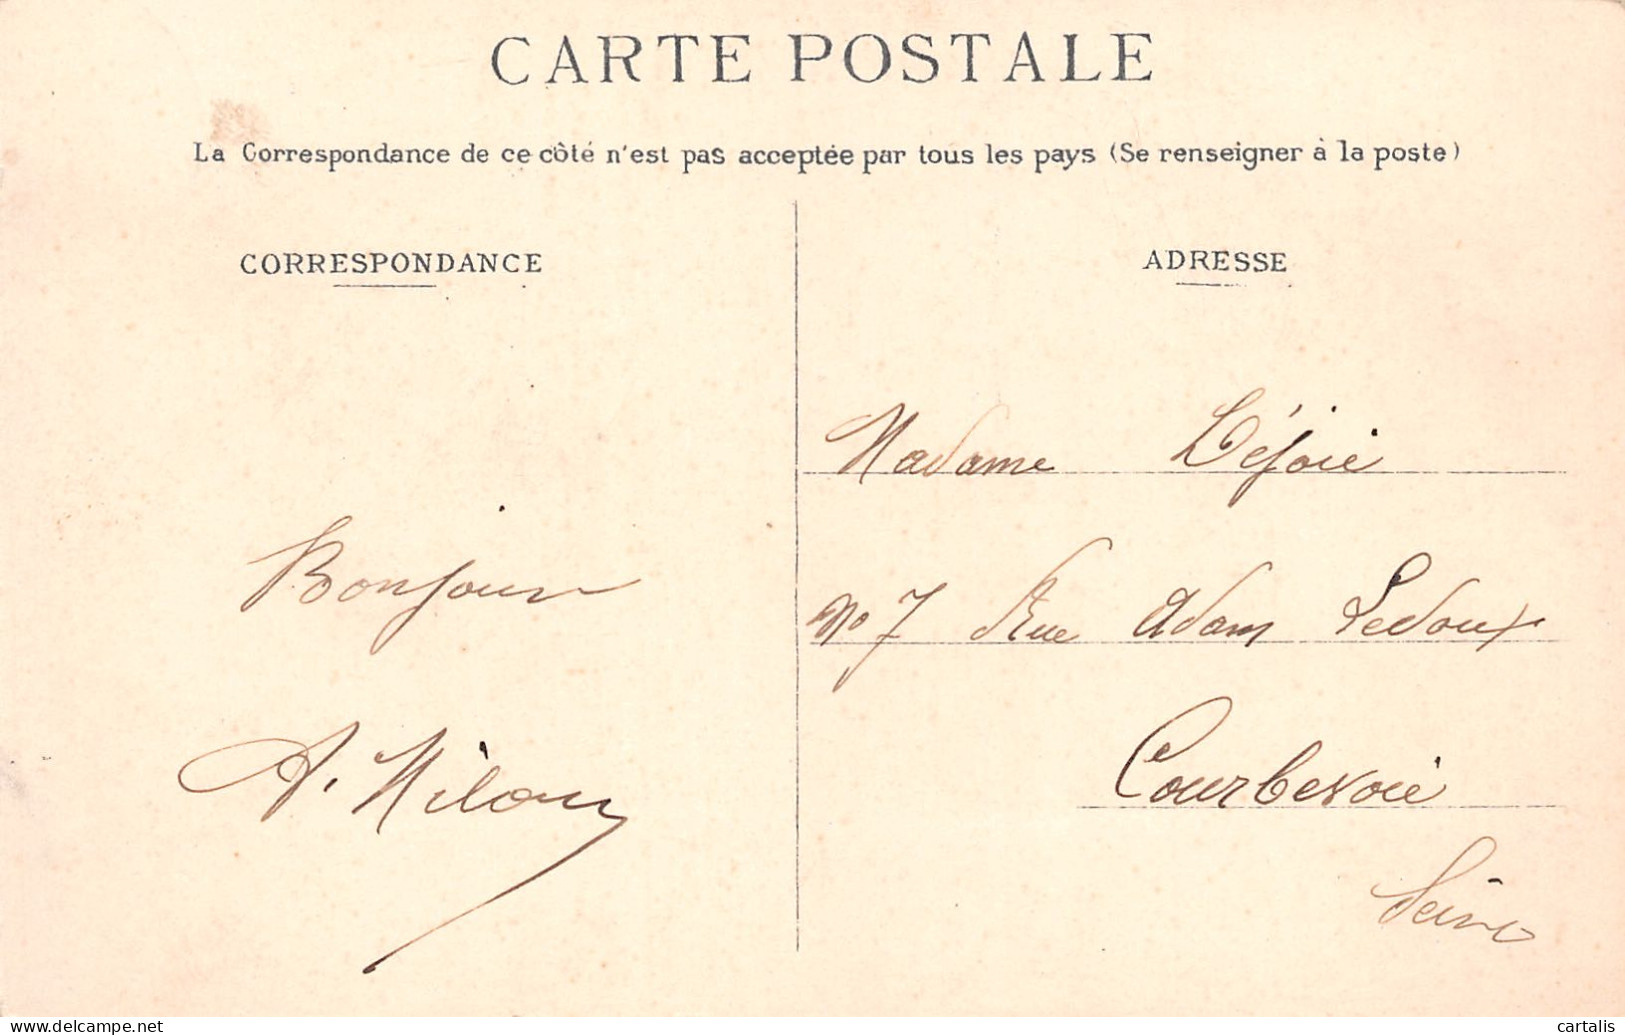 CARTE POSTALE
La Correspondance de ce côté n'est pas acceptée par tous les pays (Se renseigner à la poste)
CORRESPONDANCE
Bonjour
A. Milon
ADRESSE
Madame Léjoie
No 7 Rue Adam Ledoux
Courbevoie
Seine
www.delcampe.net
cartalis